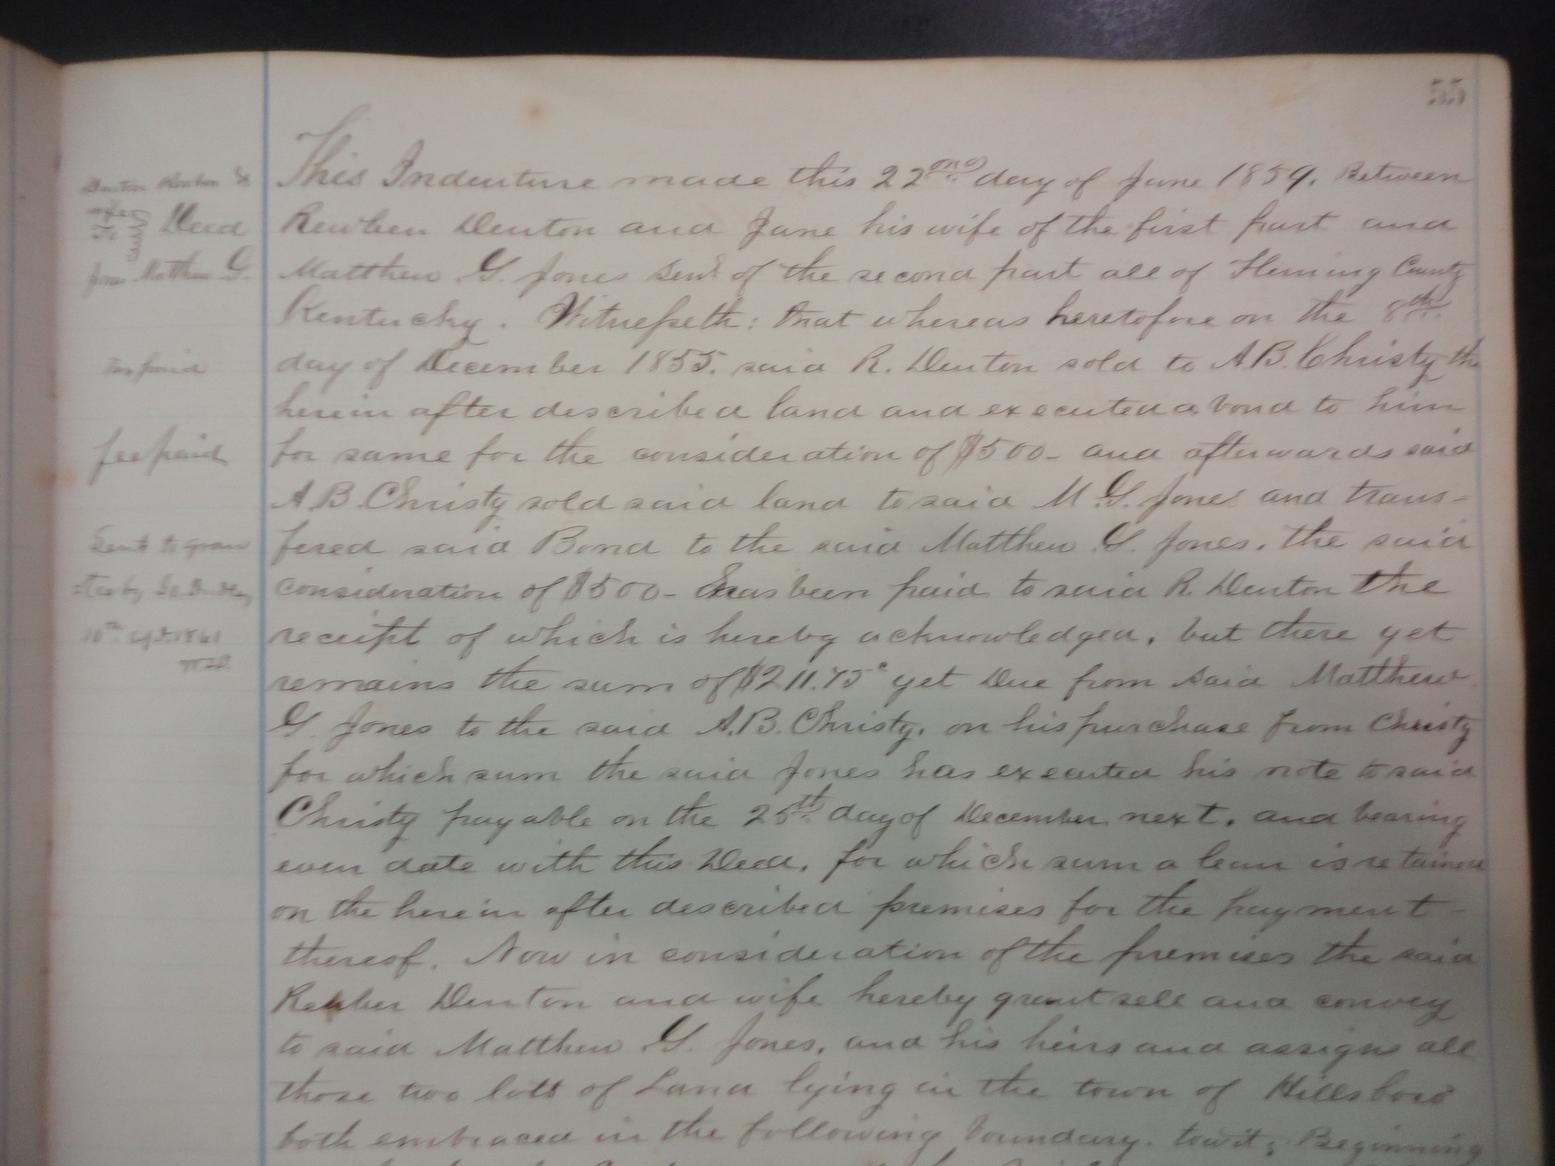 55
Denton Reuben &
wife
To Deed
Jones Matthew G.
Tax paid
fee paid
Sent to gran
-tee by
10th 1861
This Indenture made this 22nd day of June 1859. Between
Reuben Denton and Jane his wife of the first part and
Matthew G. Jones Senr. of the second part all of Fleming County
Kentucky. Witnesseth: that whereas heretofore on the 8th
day of December 1855. said R. Denton sold to A.B. Christy the
herein after described land and executed a bond to him
for same for the consideration of $500- and afterwards said
A.B. Christy sold said land to said M.G. Jones and trans-
fered said Bond to the said Matthew G. Jones. the said
consideration of $500- has been paid to said R. Denton the
receipt of which is hereby acknowledged, but there yet
remains the sum of $211.75c yet Due from said Matthew
G. Jones to the said A.B. Christy, on his purchase from Christy
for which sum the said Jones has executed his note to said
Christy payable on the 25th day of December next. and bearing
even date with this Deed, for which sum a lean is retained
on the herein after described premises for the payment-
thereof. Now in consideration of the premises the said
Reuben Denton and wife hereby grant sell and convey
to said Matthew G. Jones, and his heirs and assigns all
those two lots of Land lying in the town of Hillsboro
both embraced in the following boundary. towit; Beginning